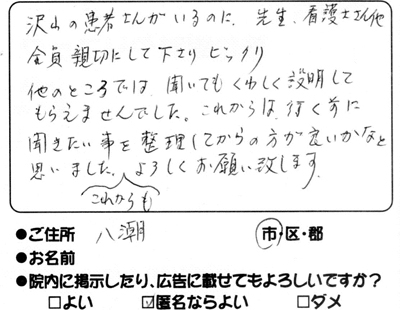 沢山の患者さんがいるのに、先生、看護士さん他
全員親切にして下さりビックリ
他のところでは、聞いてもくわしく説明して
もらえませんでした。これからは、行く前に
聞きたい事を整理してからの方が良いかなと
思いました。よろしくお願い致します。
これからも
●ご住所 八潮 市・区・郡
●お名前
●院内に掲示したり、広告に載せてもよろしいですか?
□よい ☑匿名ならよい □ダメ